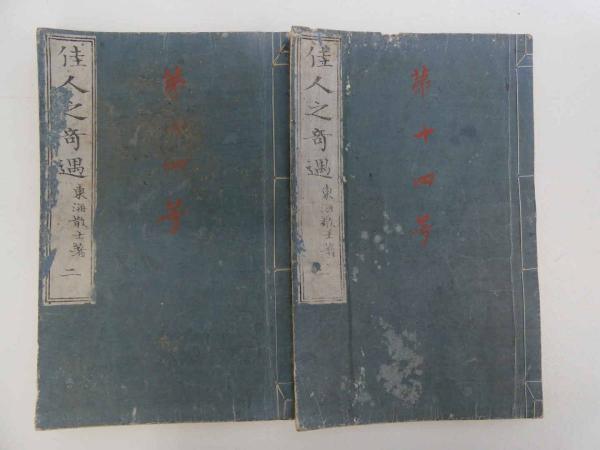 佳人之奇遇
東海散士著
一
第十四号
佳人之奇遇
東海散士著
二
第十四号